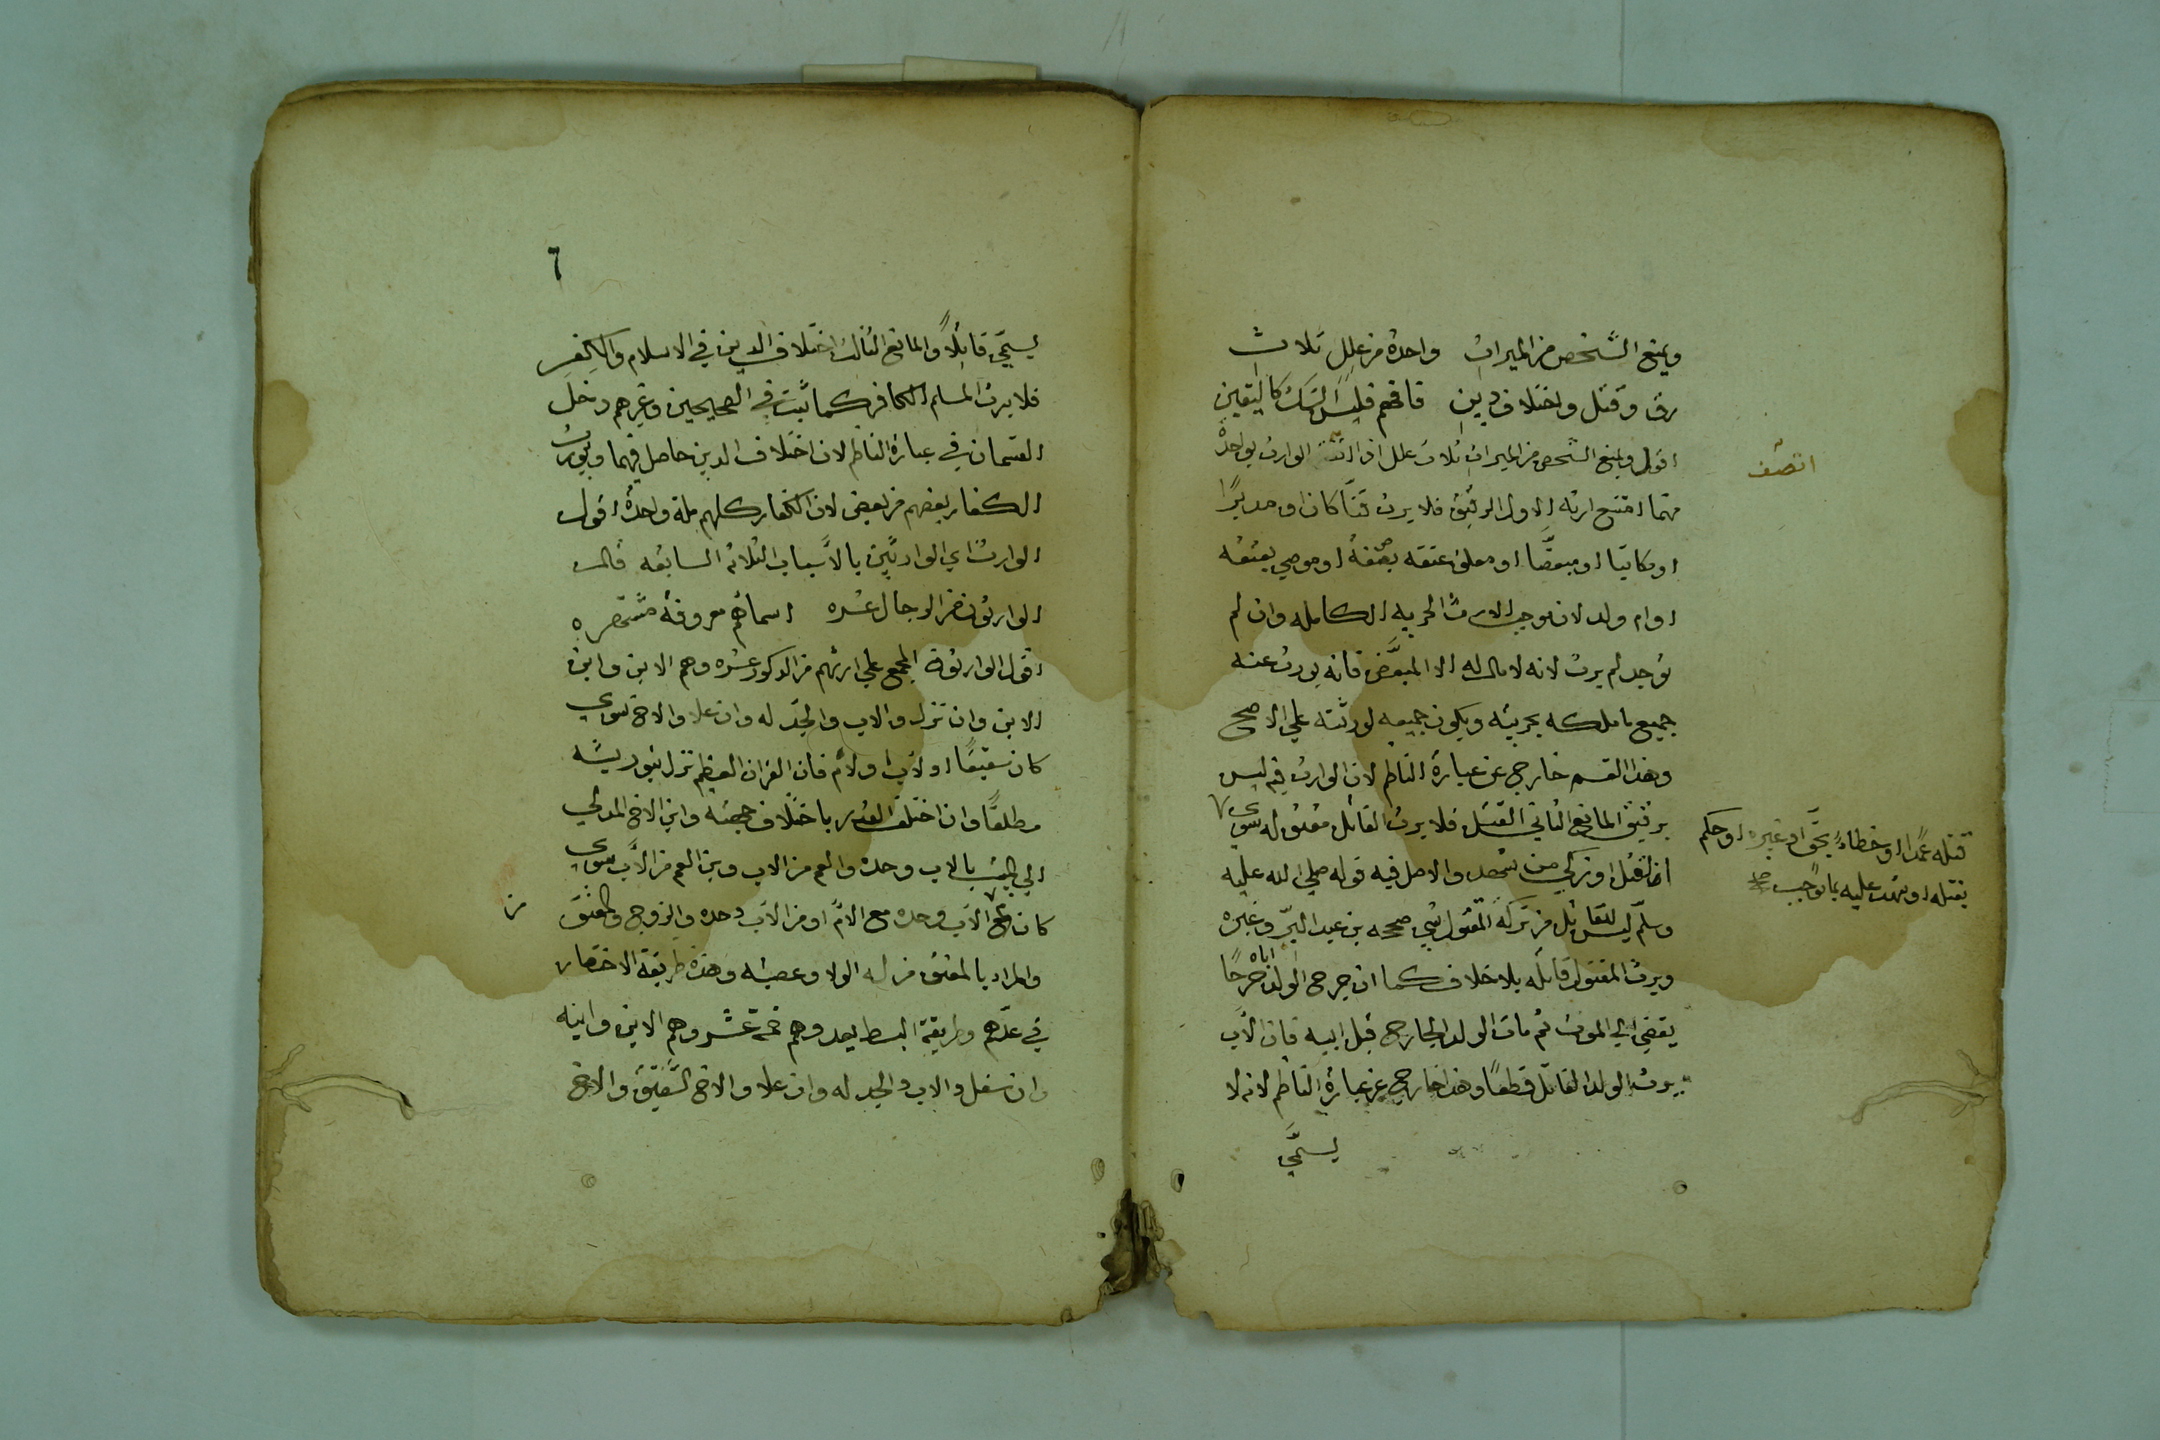 ويمنع الشخص من الميراث واحدة من علل ثلاث
رق وقتل واختلاف دين فافهم فليس الشك كاليقين
اقول ويمنع الشخص من الميراث ثلاث علل اذا الوارث بواحدة
انصف
منها امتنع ارثه الاول الرقيق فلا يرث قنّا كان او مدبرًا
او مكاتبا او مبعضّا او معلق عتقه بصفة او موصي بعتقه
او ام ولد لان موجب الارث الحريه الكامله وان لم
توجد لم يرث لانه لا مال له الا المبعَّض فانه يورث عنه
جميع ما ملكه بحريته ويكون جميعه لورثته علي الاصح
وهذا القسم خارج عن عبارة الناظم لان الوارث فيه ليس
برقيق المانع الثاني القتل فلا يرث القاتل مقتوله سوي
قتله عمدًا او خطاءً بحق او غيره او حكم
بقتله او شهد عليه بما يوجب صح
القتل او زكي من شهد والاصل فيه قوله صلي الله عليه
وسلّم ليس للقاتل من تركة المقتول شي صححه بن عبد البرّ وغيره
ويرث المقتول قاتله بلا خلاف كما ان جرح الولد اباه جرحًا
يفضي الي الموت ثم مات الولد الجارح قبل ابيه فان الاب
يرث الولد القاتل قطعًا وهذا خارج عن عبارة الناظم لانه لا
يسمّي
٦
يسمّي قاتلاً والمانع الثالث اختلاف الدين في الاسلام والكفر
فلا يرث المسلم الكافر كما ثبت في الصحيحين وغيرهم دخل
القسمان في عبارة الناظم لان اختلاف الدين حاصل فيهما ويورث
الكفار بعضهم من بعض لان الكفار كلهم ملة واحدة اقول
الوارث اي الوارثين بالاسباب الثلاثه السابقه قالـ
الوارثون من الرجال عشره اسماؤهم معروفة مشتهره
اقول الوارثون المجمع علي ارثهم من الذكور عشره وهم الابن وابن
الابن وان نزل والاب والجدّ له وان علا والاخ سوي
كان شقيقًا او لاب او لام فان القران العظيم نزل بتوريثه
مطلقًا وان اختلف القدر باختلاف جهته وابن الاخ المدلي
الي الميت بالاب وحده والعم من الاب وبن العم من الاب سوي
كان من الاب وحده مع الام او من الاب وحده والزوج والمعتق
والمراد بالمعتق من له الولا وعصبته وهذه طريقة الاختصار
في عدّهم وطريقة البسط يعد وهم خمسة عشر وهم الابن وابنه
وان سفل والاب والجد له وان علا والاخ الشقيق والاخ
من